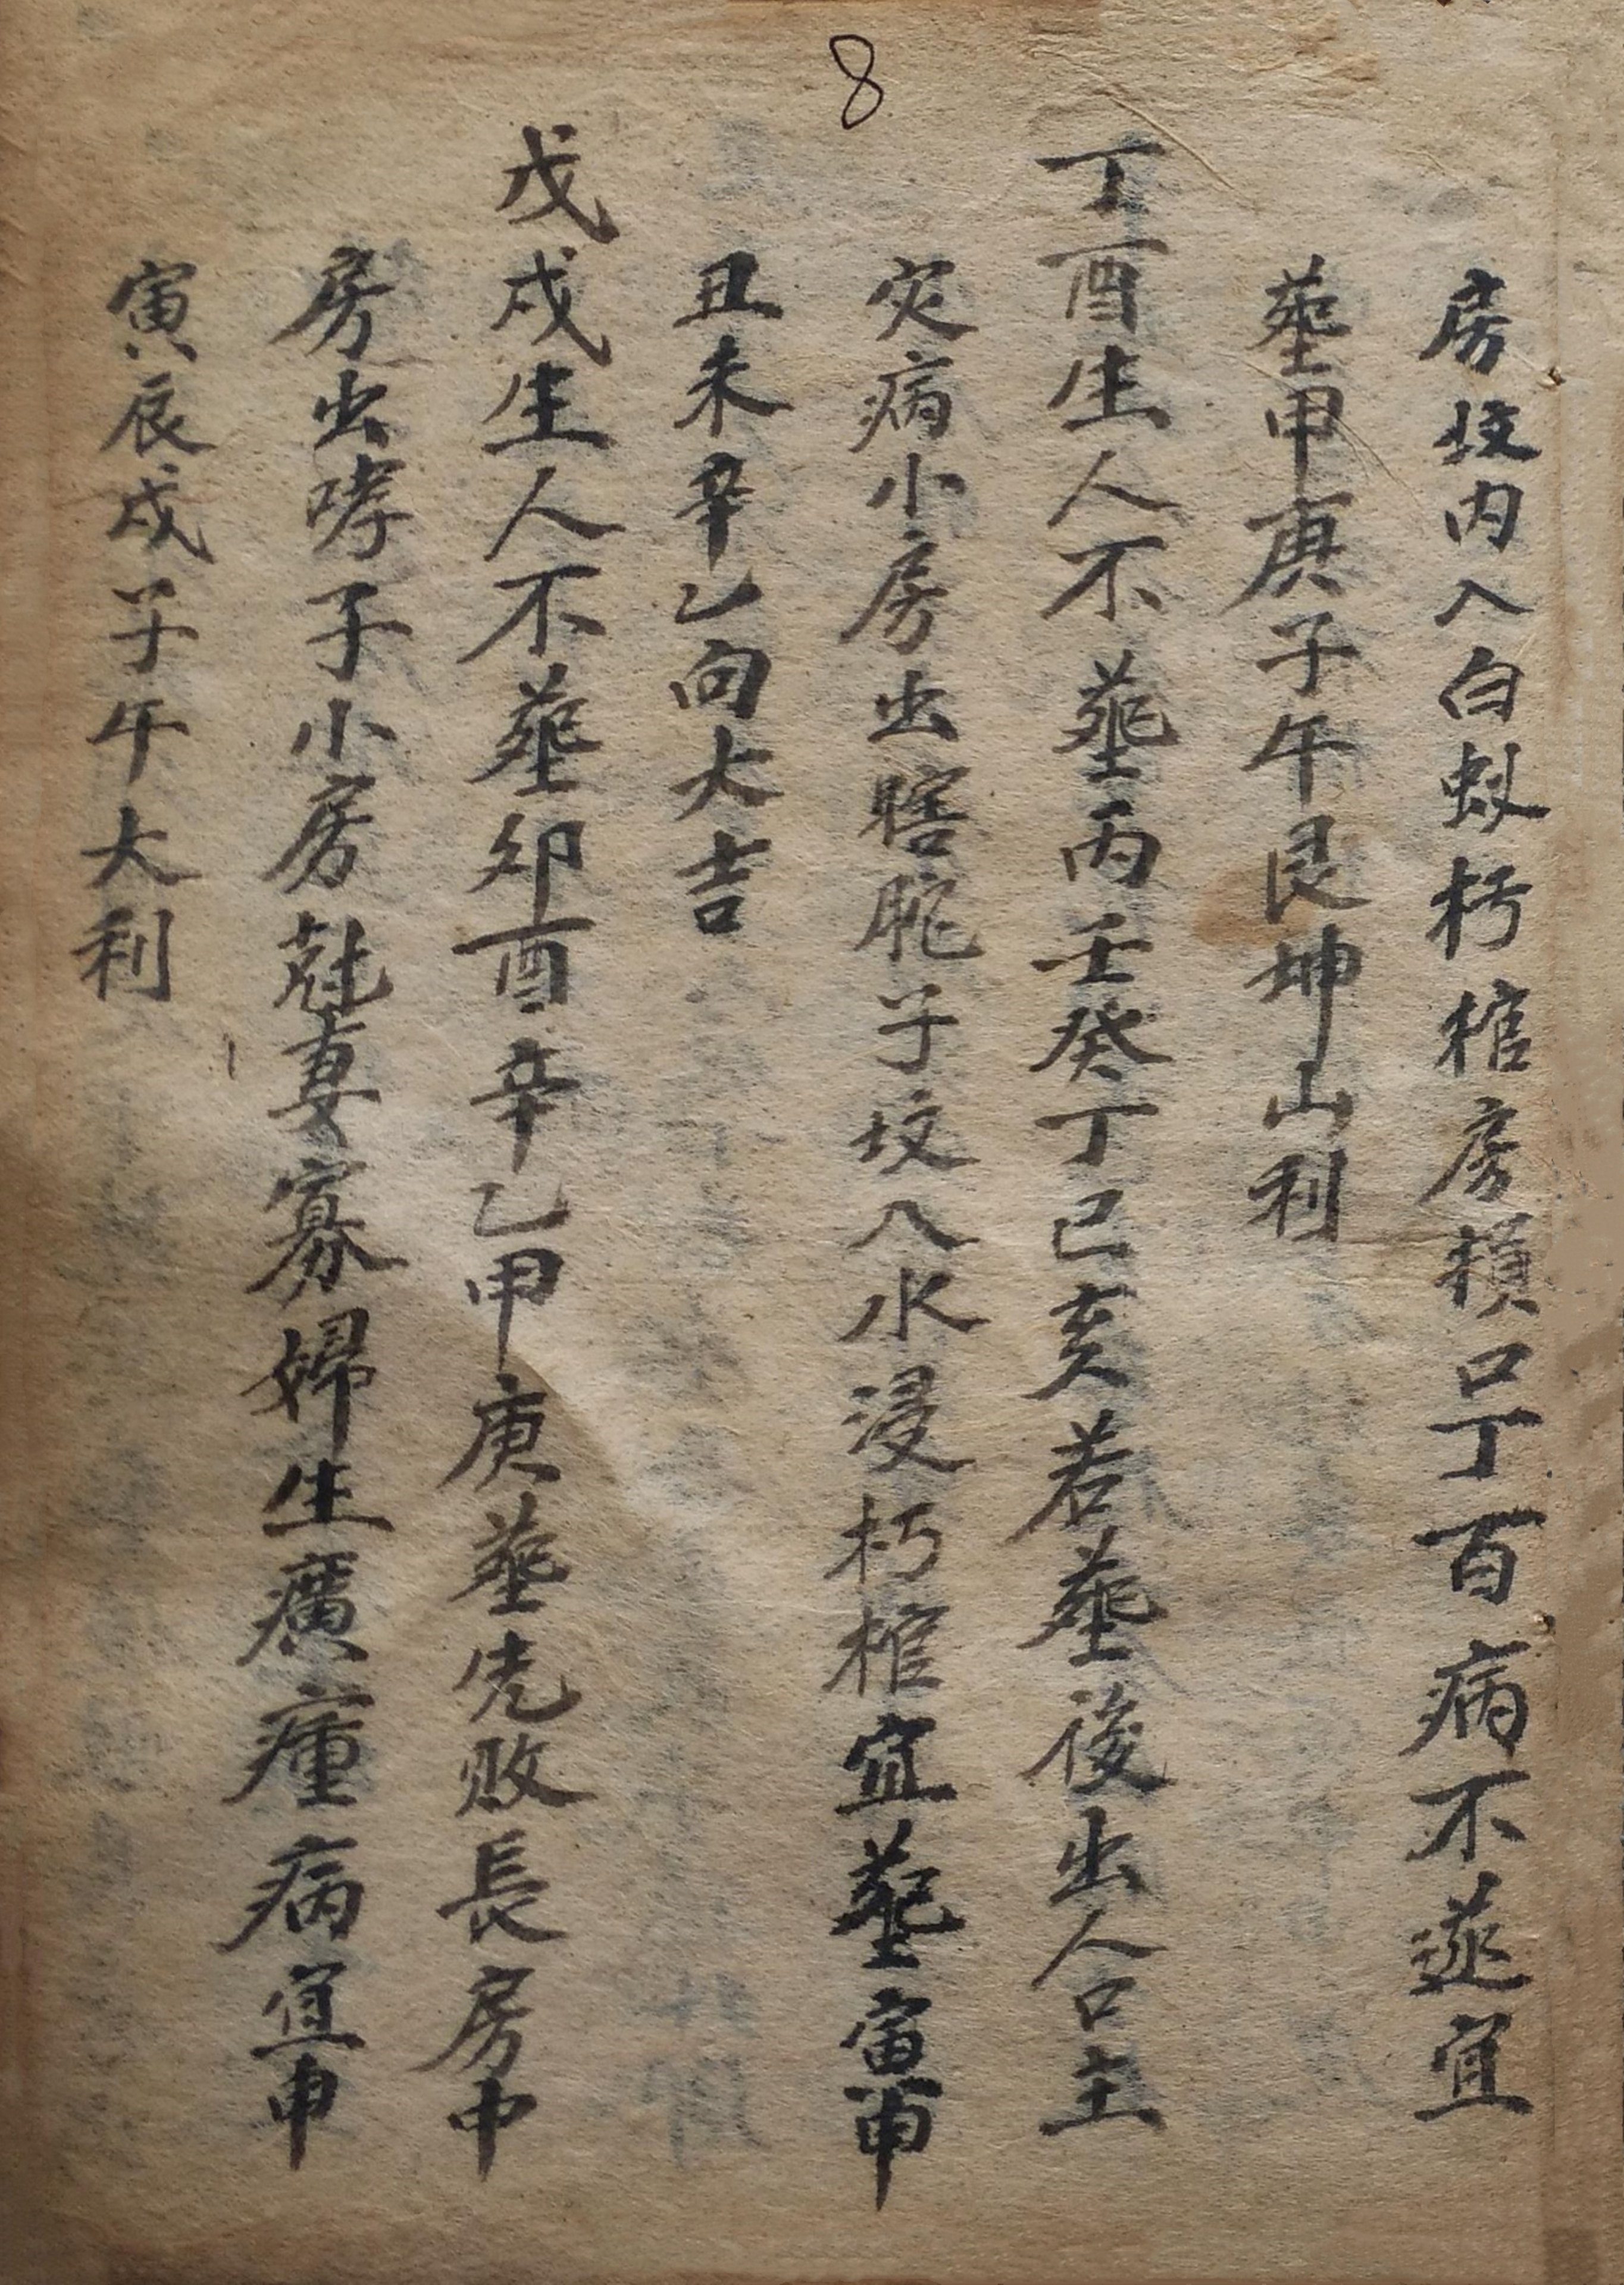 8
房坟内入白蚁朽棺房損口丁百病不遥宜
塟甲庚子午艮坤山利
丁酉生人不塟丙壬癸丁己亥若塟後出人口主
灾病小房出瞎駝子坟入水浸朽棺宜塟寅申
丑未辛乙向大吉
戊戌生人不塟卯酉辛乙甲庚塟先败長房中
房出哮子小房尅妻寡婦生癀瘇病宜申
寅辰戌子午大利